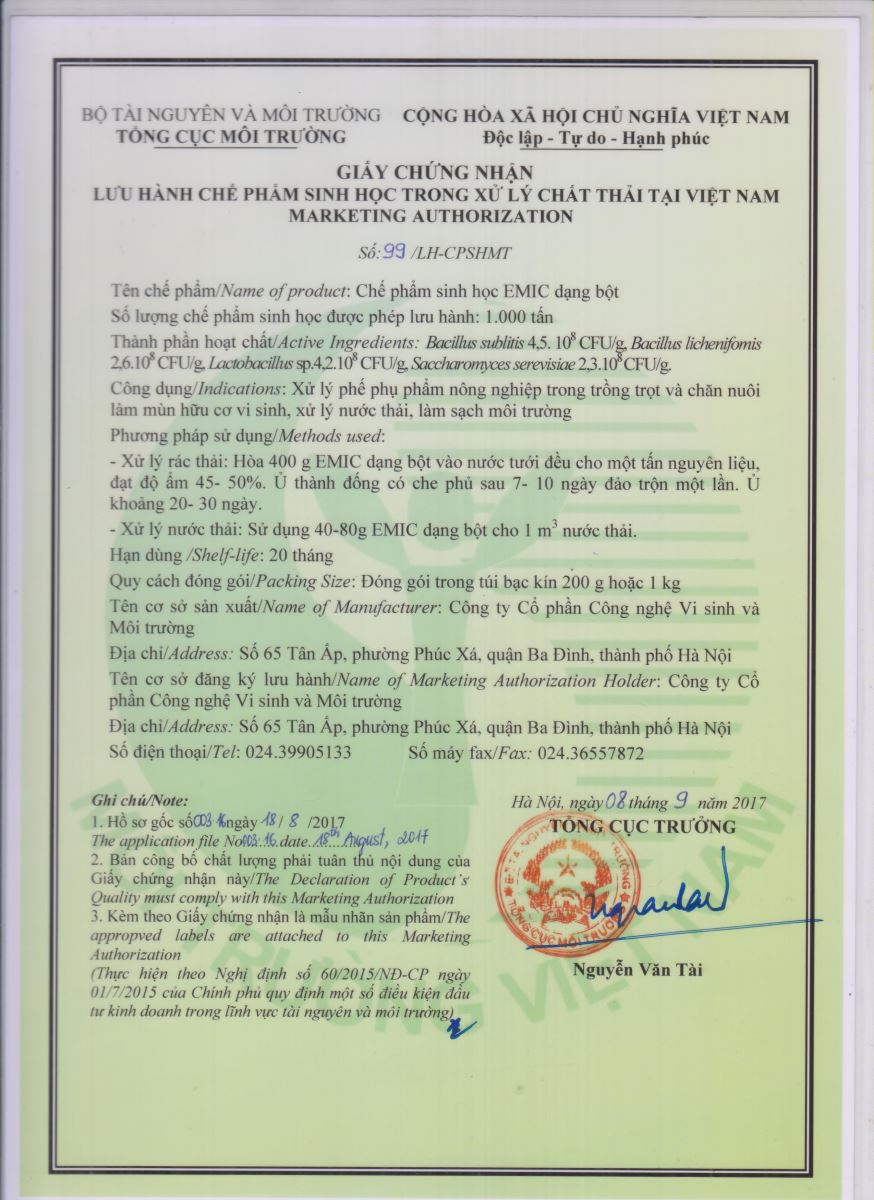 BỘ TÀI NGUYÊN VÀ MÔI TRƯỜNG
TỔNG CỤC MÔI TRƯỜNG
CỘNG HÒA XÃ HỘI CHỦ NGHĨA VIỆT NAM
Độc lập - Tự do - Hạnh phúc
GIẤY CHỨNG NHẬN
LƯU HÀNH CHẾ PHẨM SINH HỌC TRONG XỬ LÝ CHẤT THẢI TẠI VIỆT NAM
MARKETING AUTHORIZATION
Số: 99 /LH-CPSHMT
Tên chế phẩm/Name of product: Chế phẩm sinh học EMIC dạng bột
Số lượng chế phẩm sinh học được phép lưu hành: 1.000 tấn
Thành phần hoạt chất/Active Ingredients: Bacillus sublitis 4,5. 10⁸ CFU/g, Bacillus lichenifomis
2,6.10⁸ CFU/g, Lactobacillus sp.4,2.10⁸ CFU/g, Saccharomyces serevisiae 2,3.10⁸ CFU/g.
Công dụng/Indications: Xử lý phế phụ phẩm nông nghiệp trong trồng trọt và chăn nuôi
làm mùn hữu cơ vi sinh, xử lý nước thải, làm sạch môi trường
Phương pháp sử dụng/Methods used:
- Xử lý rác thải: Hòa 400 g EMIC dạng bột vào nước tưới đều cho một tấn nguyên liệu,
đạt độ ẩm 45- 50%. Ủ thành đống có che phủ sau 7- 10 ngày đảo trộn một lần. Ủ
khoảng 20- 30 ngày.
- Xử lý nước thải: Sử dụng 40-80g EMIC dạng bột cho 1 m³ nước thải.
Hạn dùng /Shelf-life: 20 tháng
Quy cách đóng gói/Packing Size: Đóng gói trong túi bạc kín 200 g hoặc 1 kg
Tên cơ sở sản xuất/Name of Manufacturer: Công ty Cổ phần Công nghệ Vi sinh và
Môi trường
Địa chỉ/Address: Số 65 Tân Ấp, phường Phúc Xá, quận Ba Đình, thành phố Hà Nội
Tên cơ sở đăng ký lưu hành/Name of Marketing Authorization Holder: Công ty Cổ
phần Công nghệ Vi sinh và Môi trường
Địa chỉ/Address: Số 65 Tân Ấp, phường Phúc Xá, quận Ba Đình, thành phố Hà Nội
Số điện thoại/Tel: 024.39905133 Số máy fax/Fax: 024.36557872
Ghi chú/Note:
1. Hồ sơ gốc số 003.16 ngày 18 / 8 /2017
The application file No 003.16. date. 18th August, 2017
2. Bản công bố chất lượng phải tuân thủ nội dung của
Giấy chứng nhận này/The Declaration of Product's
Quality must comply with this Marketing Authorization
3. Kèm theo Giấy chứng nhận là mẫu nhãn sản phẩm/The
appropved labels are attached to this Marketing
Authorization
(Thực hiện theo Nghị định số 60/2015/NĐ-CP ngày
01/7/2015 của Chính phủ quy định một số điều kiện đầu
tư kinh doanh trong lĩnh vực tài nguyên và môi trường)
Hà Nội, ngày 08 tháng 9 năm 2017
TỔNG CỤC TRƯỞNG
TỔNG CỤC MÔI TRƯỜNG
Nguyễn Văn Tài
TRƯỜNG VIỆT NAM